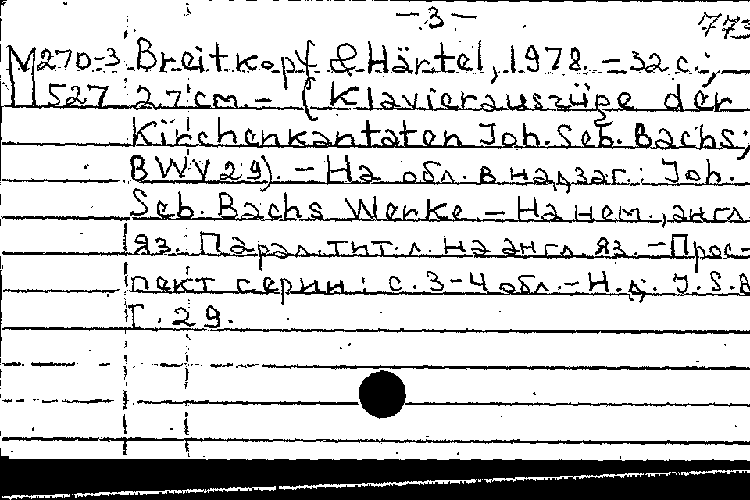 - 3 -
773
М270-3 Breitkopf & Härtel, 1978. - 32 с.;
527 27 см. - (Klavierauszüge der
Kirchenkantaten Joh. Seb. Bachs;
BWV 29). - На обл. в надзаг.: Joh.
Seb. Bachs Werke - На нем., англ
яз. Парал. тит. л. на англ. яз. - Прос-
пект серии: с. 3-4 обл. - Н.д. J. S. B
Т. 29.